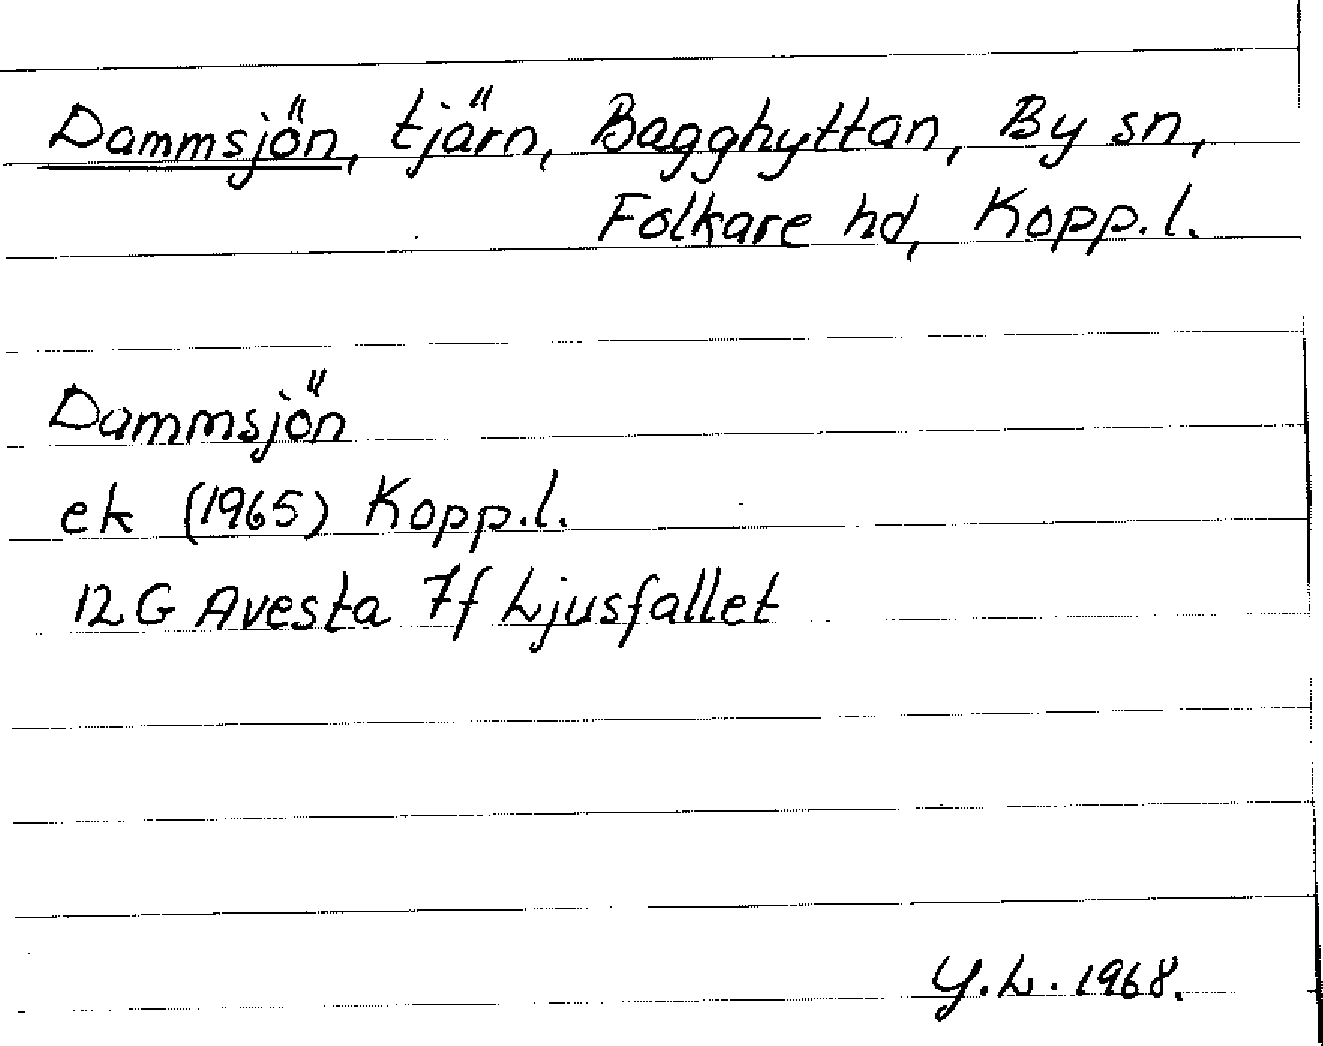 Dammsjön, tjärn, Bagghyttan, By sn,
Folkare hd, Kopp.l.
Dammsjön
ek (1965) Kopp.l.
12G Avesta 7f Ljusfallet
Y.L. 1968.